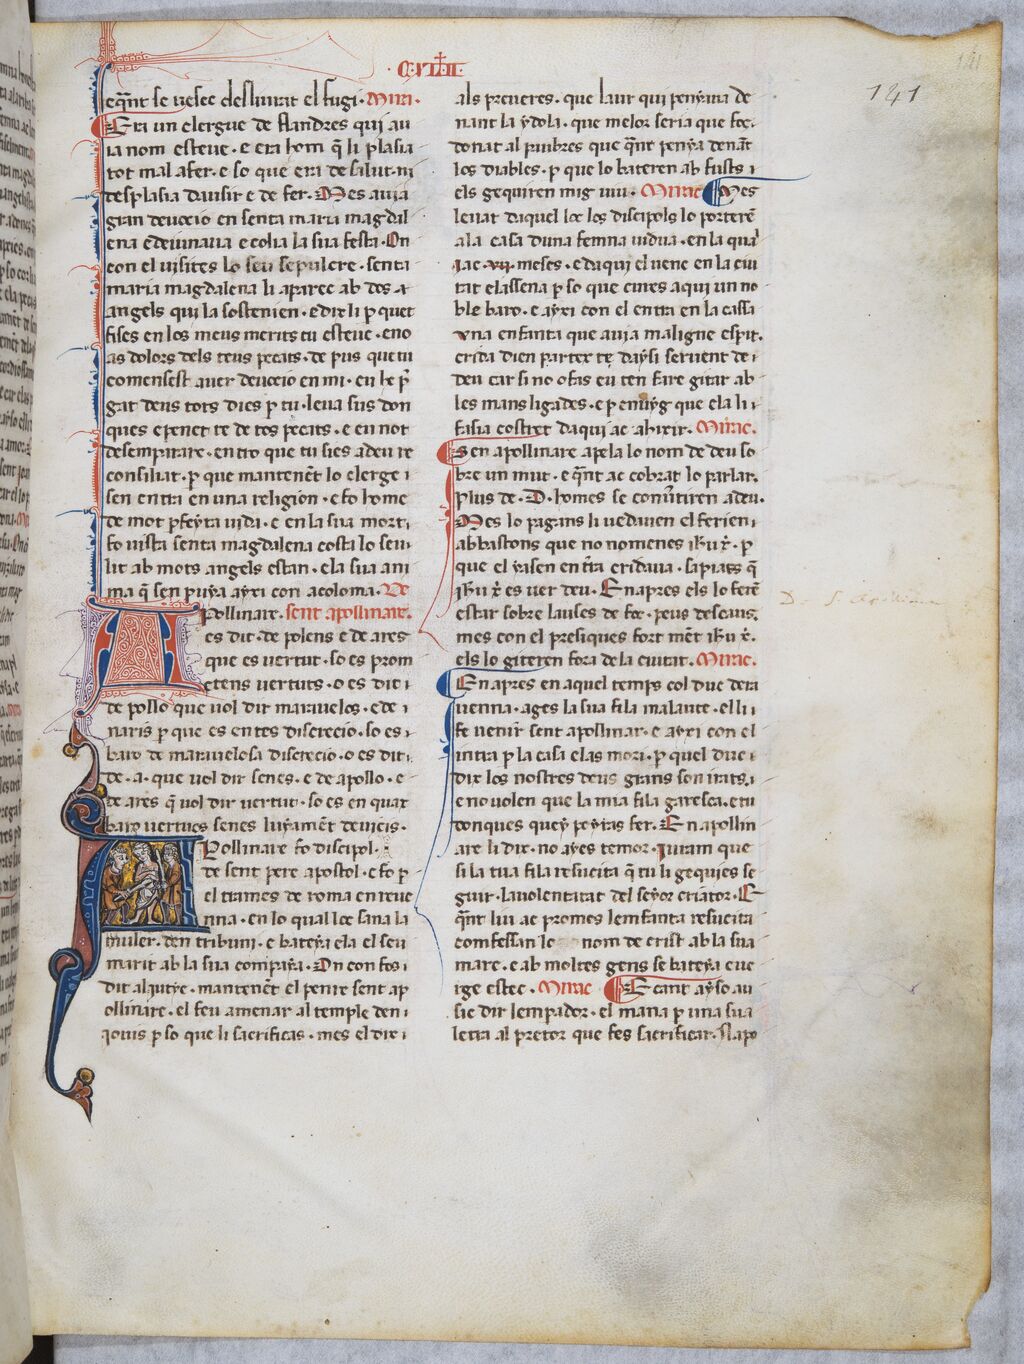 141
e q̄nt se uesec desliurat el fugi · Mira ·
Era un clergue de flandres qui au
ia nom esteue · e era hom q̄ li plasia
tot mal afer · e so que era de salut · ni
desplasia dausir e de fer · Mes auia
gran deuocio en senta maria magdal
ena e deiunaua e colia la sua festa · On
con el uisites lo seu sepulcre · senta
maria magdalena li aparec ab dos
angels qui la sostenien · e dix li p que
fises en los meus merits tu esteue · e no
as dolors dels teus pecats · de pus que tu
comensest auer deuocio en mi · eu he p̄
gat deus tots dies p tu · leua sus don
ques e penet te de tos pecats · e eu not
desemparare · entro que tu sies a deu re
consiliat · p que mantenēt lo clerge
sen entra en una religion · e fo home
de mot pfeyta uida · e en la sua mort
fo uista senta magdalena costa lo seu
lit ab mots angels estan · e la sua ani
ma q̄ sen puya axi con a coloma · De
Apollinare · sent apollinare ·
es dit · de polens e de ares
que es uertut · so es prom
etens uertuts · o es dit
de pollo que uol dir marauelos · e de
naris p que es entes discrecio · so es
baro de marauelosa discrecio · o es dit
de · a · que uol dir senes · e de apollo · e
de ares q̄ uol dir uertut · so es en quax
baro uertuos senes luyamēt de uicis ·
Apollinare fo discipol ·
de sent pere apostol · e fo p
el trames de roma en reue
nna · en lo qual loc sana la
muler · den tribuni · e bateya ela el seu
marit ab la sua companya · On con fos
dit al iutye · mantenēt el penre sent ap
ollinare · el feu amenar al temple den
iouis p so que li sacrificas · mes el dix
als preueres · que laur qui penyaua de
nant la ydola · que melor seria que fos
donat al paubres que q̄nt penya denāt
los diables · p que lo bateren ab fusts
els gequiren mig uiu · Mirac Mes
leuat daquel loc los discipols lo porterē
a la casa duna femna uidua · en la qual
iac · vii · meses · e daqui el uenc en la ciu
tat classena p so que cures aqui un no
ble baro · e axi con el entra en la cassa
vna enfanta que auia maligne espit ·
crida dien partex te daysi seruent de
deu car si no o fas eu ten fare gitar ab
les mans ligades · e p enuyg que ela li
fasia costret daqui ac a hixir · Mirac ·
Sen apollinare apela lo nom de deu so
bre un mut · e q̄nt ac cobrat lo parlar
plus de · D · homes se conūtiren a deu ·
Mes lo pagans li uedauen el ferien
ab bastons que no nomenes ihū x̄ · p
que el yasen en tr̄a cridaua · sapiats q̄
ihū x̄ es uer deu · Enapres els lo ferē
estar sobre lauses de foc · peus descaus
mes con el presiques fort mēt ihū x̄ ·
els lo giteren fora de la ciutat · Mirac ·
Enapres en aquel temps col duc de ra
uenna · ages la sua fila malaute · el li
fe uenir sent apollinar · e axi con el
intra p la casa elas mori · p quel duc
dix los nostres deus grans son irats
e no uolen que la mia fila garesca · e tu
donques quey poyras fer · En apollin
are li dix · no ayes temor · Juram que
si la tua fila resucita q̄ tu li gequies se
guir · la uolentat del seyor criator · E
q̄nt lui ac promes lemfanta resucita
comfessan lo nom de crist ab la sua
mare · e ab moltes gens se bateya e ue
rge estec · Mirac Ecant ayso au
sic dir lempador · el mana p una sua
letra al pretor que fes sacrificar · Napo